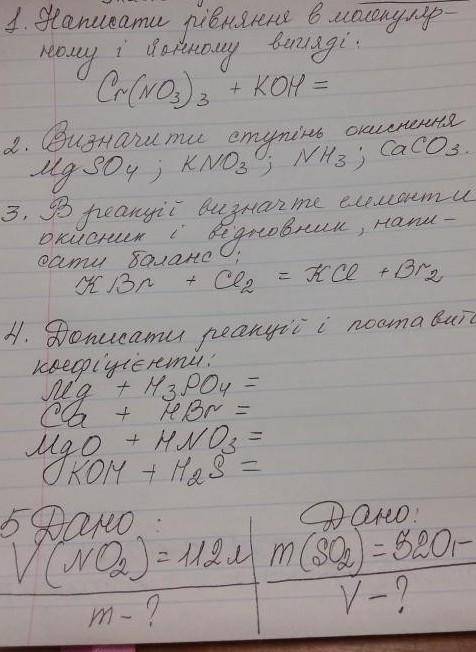 1. Написати рівняння в молекуляр-
ному і йонному вигляді.
Cr(NO3)3 + KOH =
2. Визначити ступінь окиснення
MgSO4 ; KNO3 ; NH3 ; CaCO3.
3. В реакції визначте елементи
окисник і відновник, напи-
сати баланс:
KBr + Cl2 = KCl + Br2
4. Дописати реакції і поставити
коефіцієнти:
Mg + H3PO4 =
Ca + HBr =
MgO + HNO3 =
KOH + H2S =
5 Дано :
V(NO2) = 112 л
m - ?
Дано:
m(SO2) = 320 г
V - ?